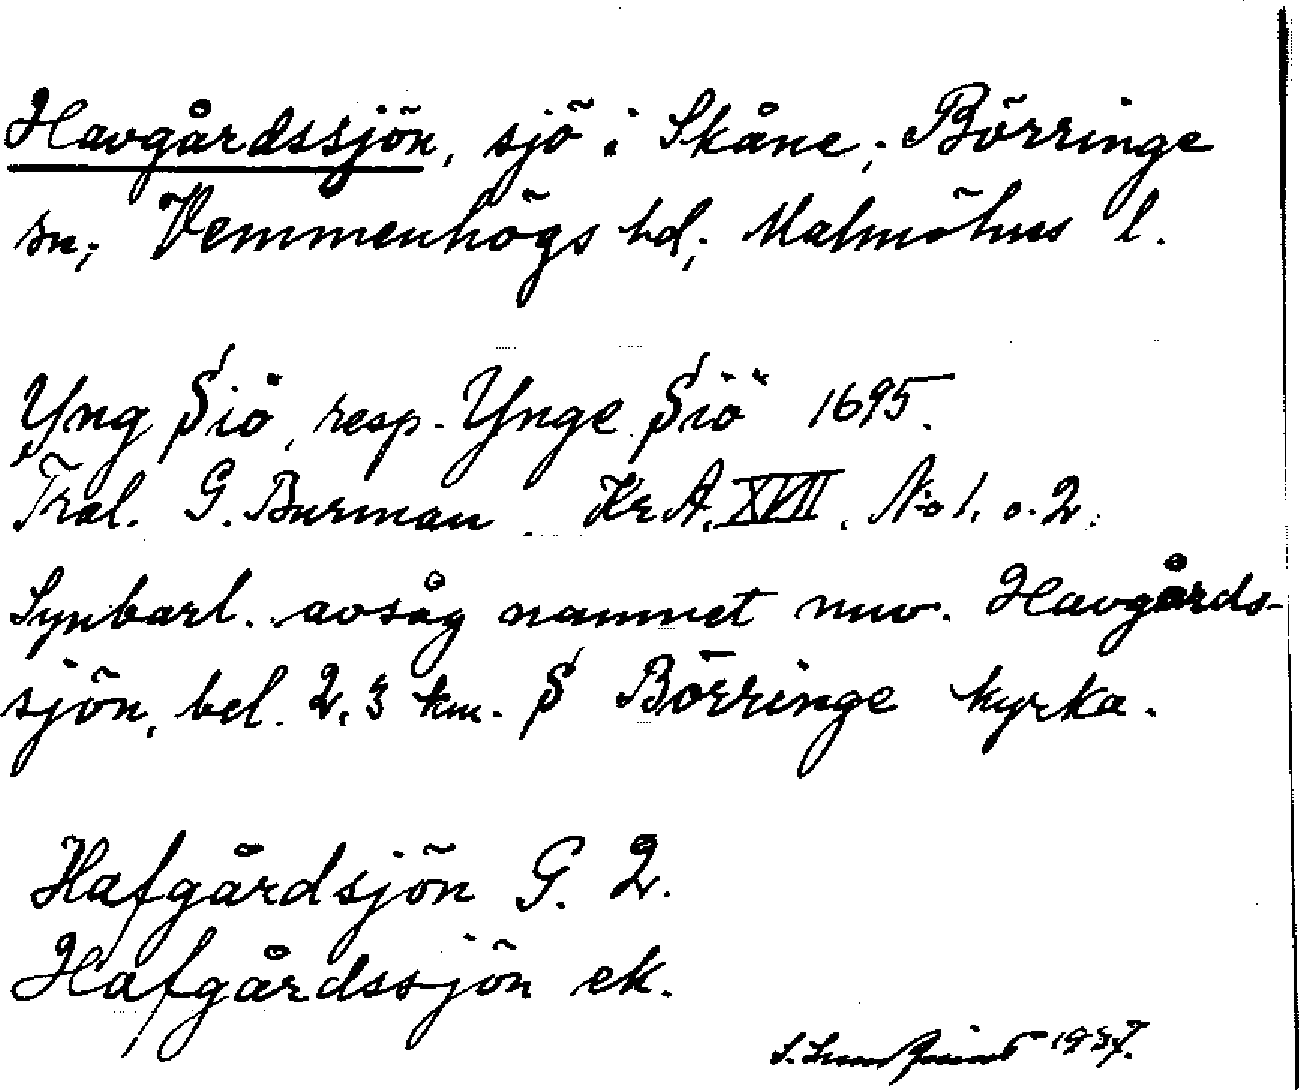 Havgårdssjön, sjö i Skåne; Börringe
sn; Vemmenhögs hd; Malmöhus l.
Yng Siö, resp. Ynge Siö 1695.
G. Burman. Kr A. XVII. No 1. o. 2.
Synbarl. avsåg namnet nuv. Havgårds-
sjön, bel. 2,3 km. S Börringe kyrka.
Hafgårdsjön G. 2.
Hafgårdssjön ek.
1937.